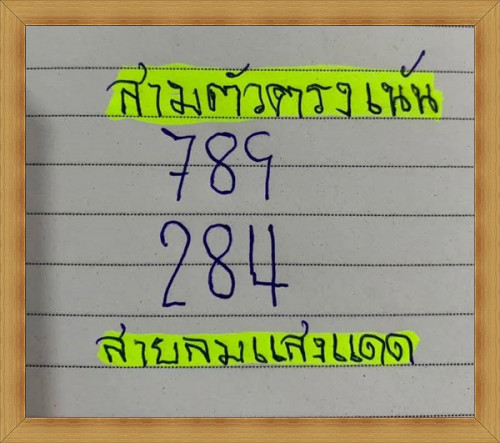 สามตัวตรงเน้น
789
284
สายลมแสงแดด